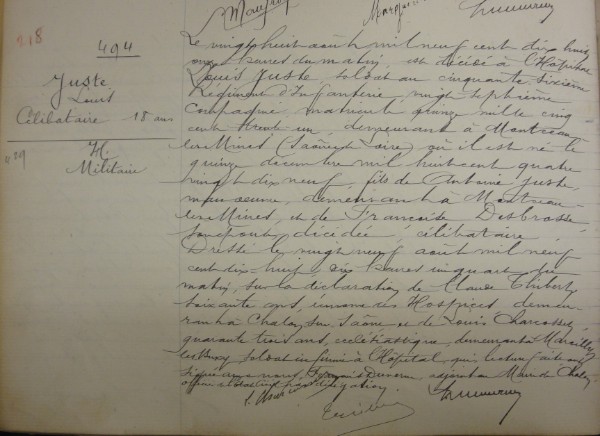 218
494
Juste
Louis
Célibataire 18 ans
H.
Militaire
Le vingt huit août mil neuf cent dix huit
onze heures du matin, est décédé à l'Hôpital
Louis Juste, soldat au cinquante sixième
Régiment d'Infanterie, vingt septième
compagnie, matricule quinze mille cinq
cent trente un, demeurant à Montceau
les Mines (Saône et Loire) où il est né le
quinze décembre mil huit cent quatre
vingt dix neuf, fils de Antoine Juste,
manœuvre, demeurant à Montceau
les Mines, et de Françoise Desbrosse
son épouse décédée, célibataire,
Dressé le vingt neuf août mil neuf
cent dix huit, dix heures un quart du
matin, sur la déclaration de Claude
soixante ans, aux Hospices demeu
rant à Chalon sur Saône et de Louis
quarante trois ans, ecclésiastique, demeurant à Marcilly
les Buxy, soldat infirmier à l'Hôpital, qui, lecture faite ont
signé avec nous, adjoint au Maire de Chalon
officier d'état civil par délégation.